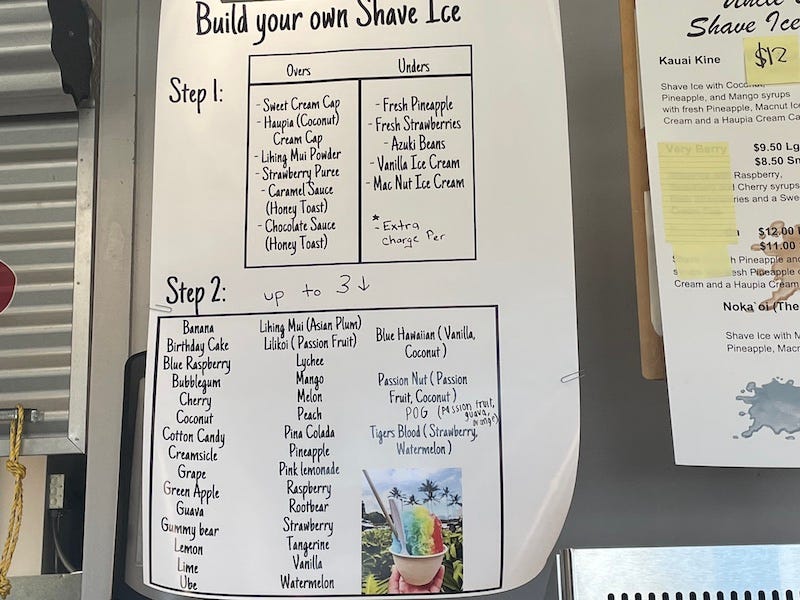 Build your own Shave Ice
Step 1:
Overs
- Sweet Cream Cap
- Haupia (Coconut)
Cream Cap
- Lihing Mui Powder
- Strawberry Puree
- Caramel Sauce
(Honey Toast)
- Chocolate Sauce
(Honey Toast)
Unders
- Fresh Pineapple
- Fresh Strawberries
- Azuki Beans
- Vanilla Ice Cream
- Mac Nut Ice Cream
* - Extra
charge Per
Step 2:
up to 3 ↓
Banana
Birthday Cake
Blue Raspberry
Bubblegum
Cherry
Coconut
Cotton Candy
Creamsicle
Grape
Green Apple
Guava
Gummy bear
Lemon
Lime
Ube
Lihing Mui (Asian Plum)
Lilikoi ( Passion Fruit)
Lychee
Mango
Melon
Peach
Pina Colada
Pineapple
Pink lemonade
Raspberry
Rootbear
Strawberry
Tangerine
Vanilla
Watermelon
Blue Hawaiian ( Vanilla,
Coconut )
Passion Nut ( Passion
Fruit, Coconut )
POG (Passion fruit,
guava,
orange)
Tigers Blood ( Strawberry,
Watermelon )
Shave Ice
Kauai Kine
$12
Shave Ice with Coconut,
Pineapple, and Mango syrups
with fresh Pineapple, Macnut Ice
Cream and a Haupia Cream
Very Berry
$9.50 Lg
$8.50 Sm
Raspberry,
Cherry syrups
and a
$12.00
$11.00
Pineapple and
Pineapple
Cream and a Haupia Cream
Noka`oi (The
Shave Ice with
Pineapple,